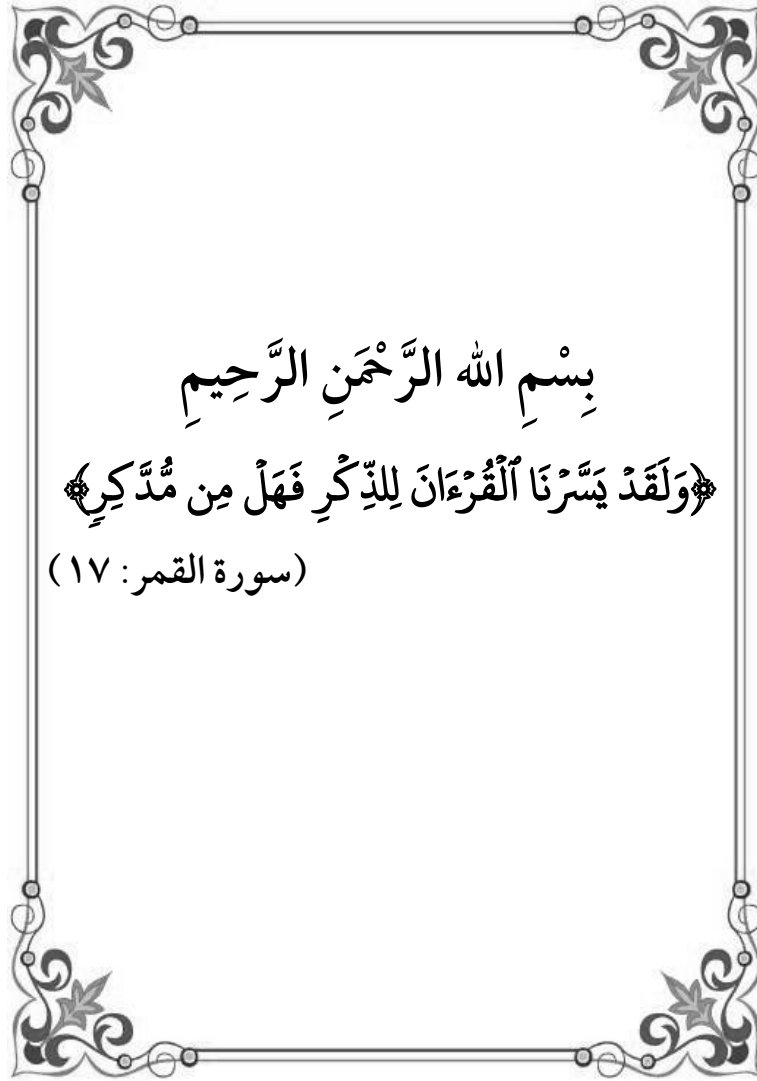 بِسْمِ الله الرَّحْمَنِ الرَّحِيمِ
﴿وَلَقَدۡ يَسَّرۡنَا ٱلۡقُرۡءَانَ لِلذِّكۡرِ فَهَلۡ مِن مُّدَّكِرٖ﴾
(سورة القمر: ١٧)